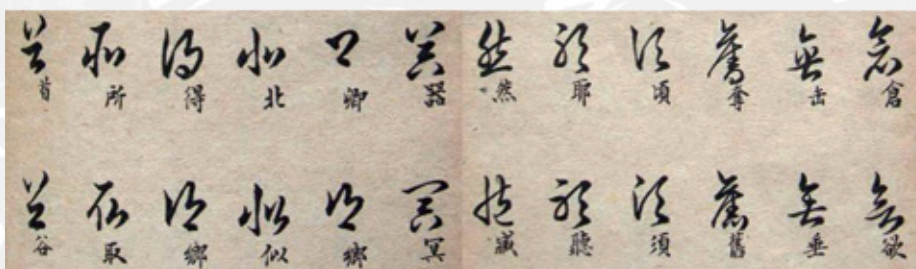 首 所 得 北 卿 器 然 耶 頃 奪 缶 倉
谷 取 鄉 似 鄉 冥 藏 聽 須 舊 垂 欲